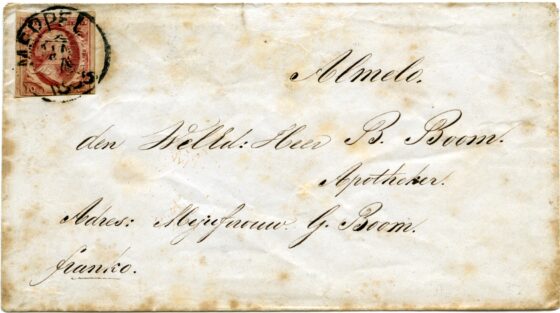 MEPPEL
Almelo.
den WelEd: Heer B. Boom.
Apotheker.
Adres: Mejufvrouw. G. Boom.
franko.